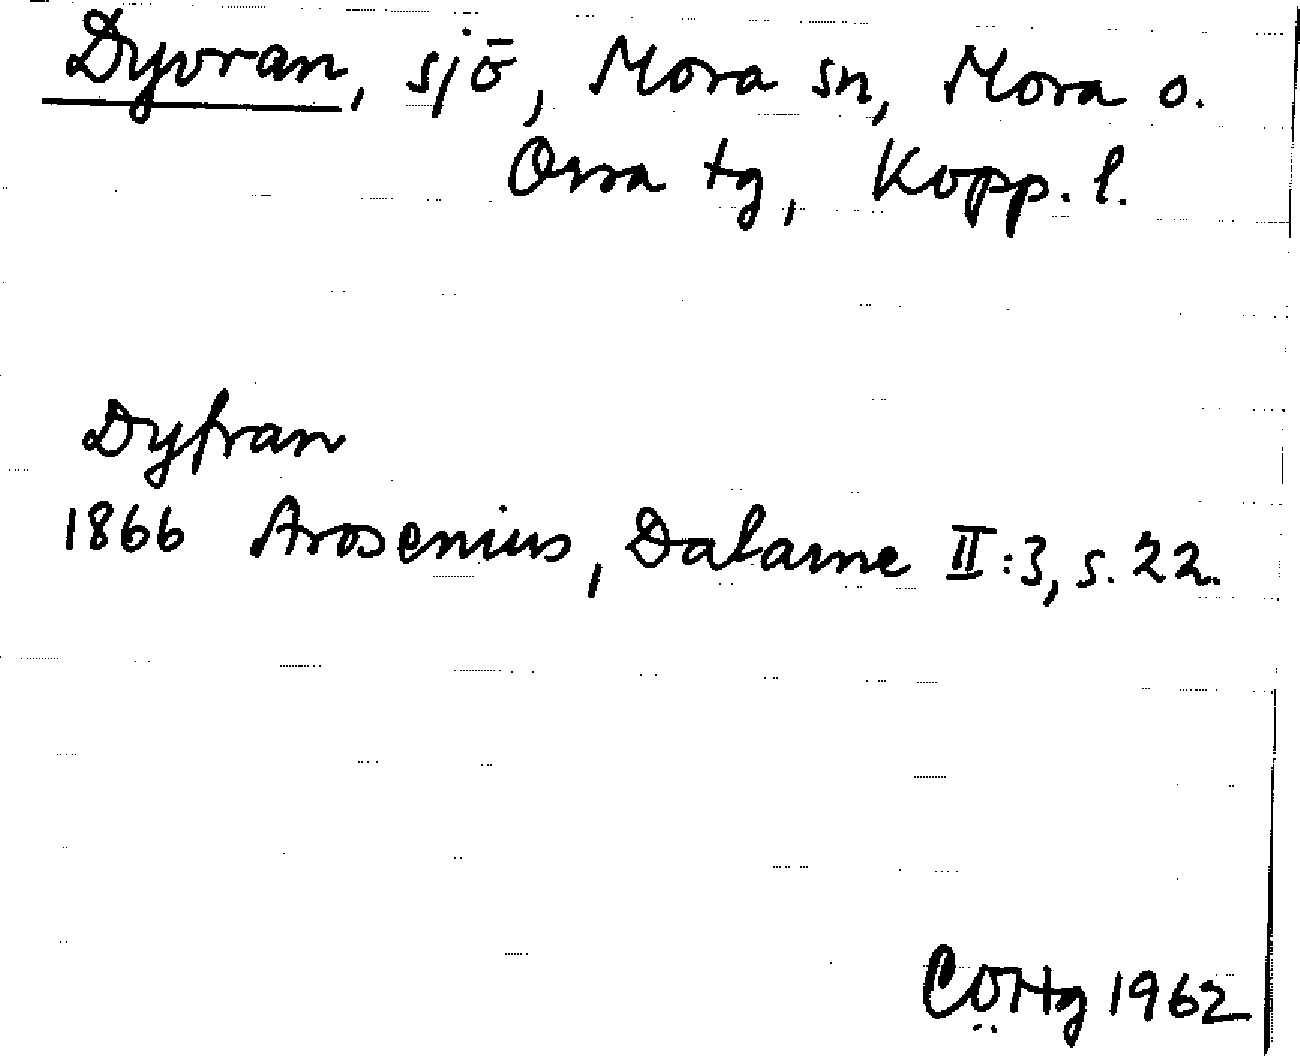 Dyvran, sjö, Mora sn, Mora o.
Orsa tg, Kopp. l.
Dyfran
1866 Arosenius, Dalarne II:3, s. 22.
1962